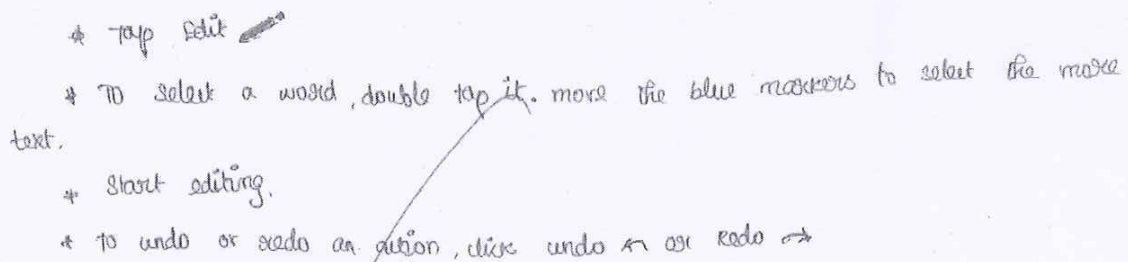 * Tap Edit
* To select a word, double tap it. move the blue markers to select the more
text.
* Start editing.
* To undo or redo an action, click undo ↶ or Redo ↷